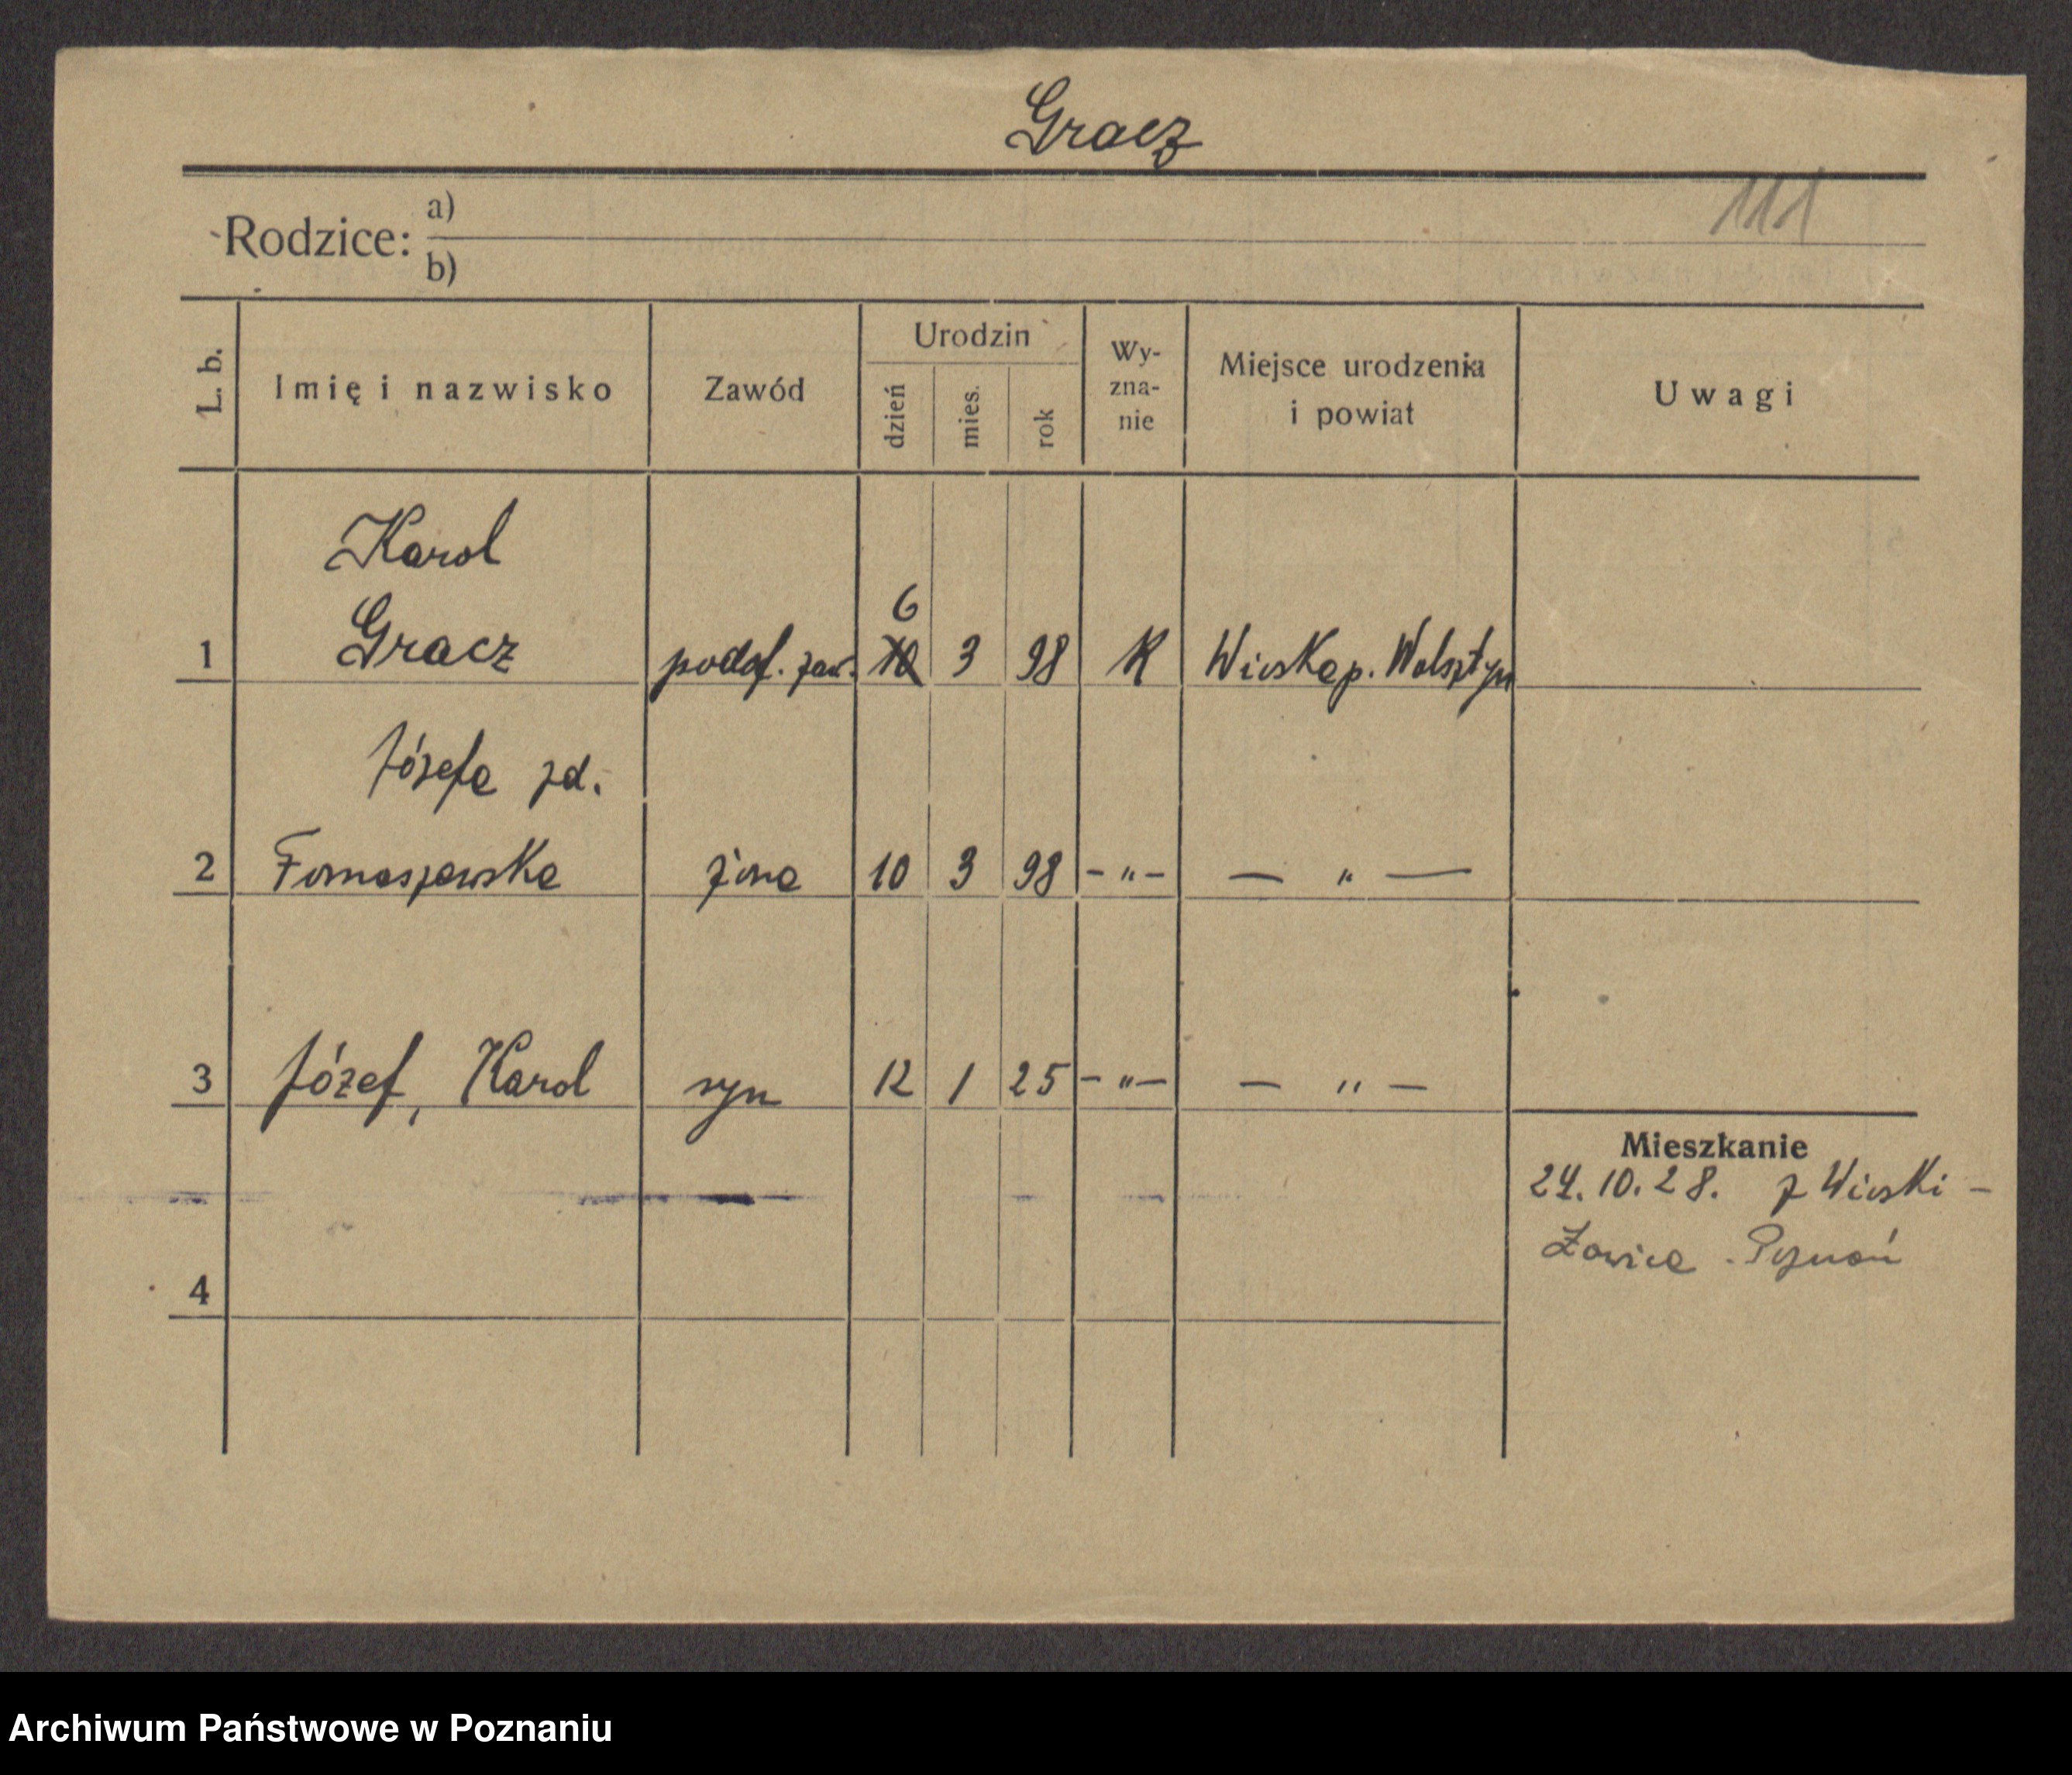 Gracz
111
Rodzice: a)
b)
L. b. Imię i nazwisko Zawód Urodzin dzień mies. rok Wy-zna-nie Miejsce urodzenia i powiat Uwagi
Karol
6
1 Gracz podof. zaw. 10 3 98 K Wioska p. Wolsztyn
Józefa zd.
2 Tomaszewska żona 10 3 98 - " - — " —
3 Józef, Karol syn 12 1 25 - " - — " —
Mieszkanie
24.10.28. z Wioski -
Ławica - Poznań
4
Archiwum Państwowe w Poznaniu